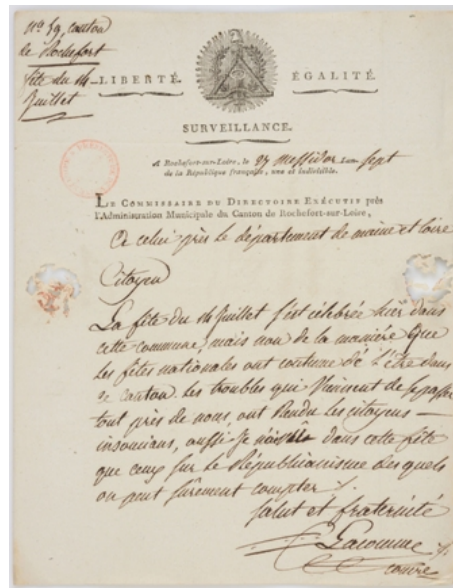 No. 59, canton
de Rochefort
fête du 14
Juillet
LIBERTÉ. ÉGALITÉ.
SURVEILLANCE.
A Rochefort-sur-Loire, le 27 Messidor l'an sept
de la République française, une et indivisible.
LE COMMISSAIRE DU DIRECTOIRE EXÉCUTIF près
l'Administration Municipale du Canton de Rochefort-sur-Loire,
A celui près le département de maine et loire
Citoyen
La fête du 14 Juillet s'est célébrée hier dans
cette commune, mais non de la manière que
les fêtes nationales ont coutume de l'être dans
ce canton. Les troubles qui viennent de se passer
tout près de nous, ont rendu les citoyens
insoucians, aussi je dans cette fête
que ceux sur le Républicanisme des quels
on peut sûrement compter ./.
Salut et fraternité